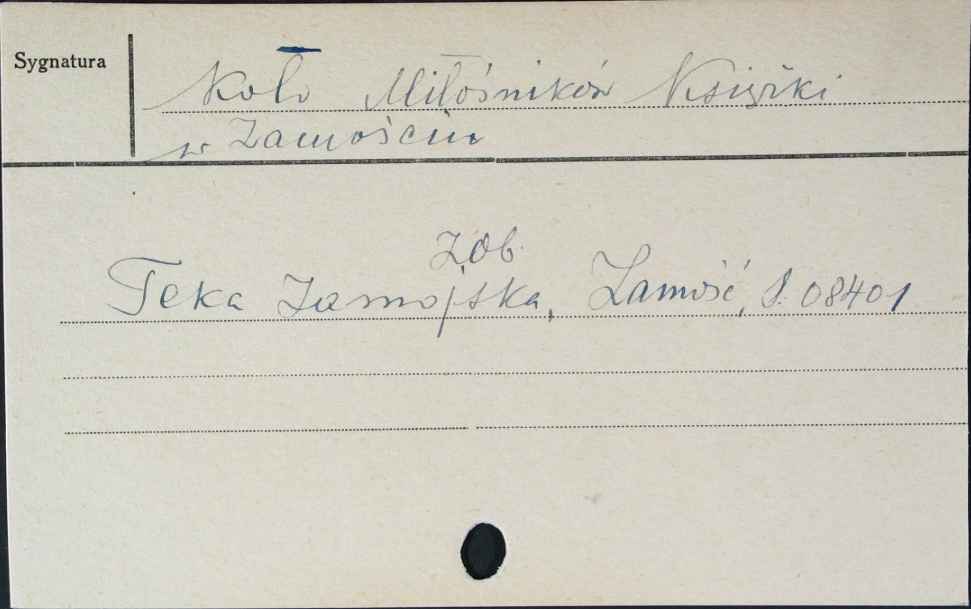 Sygnatura
Koło Miłośników Książki
w Zamościu
Zob.
Teka Zamojska, Zamość, S. 08401